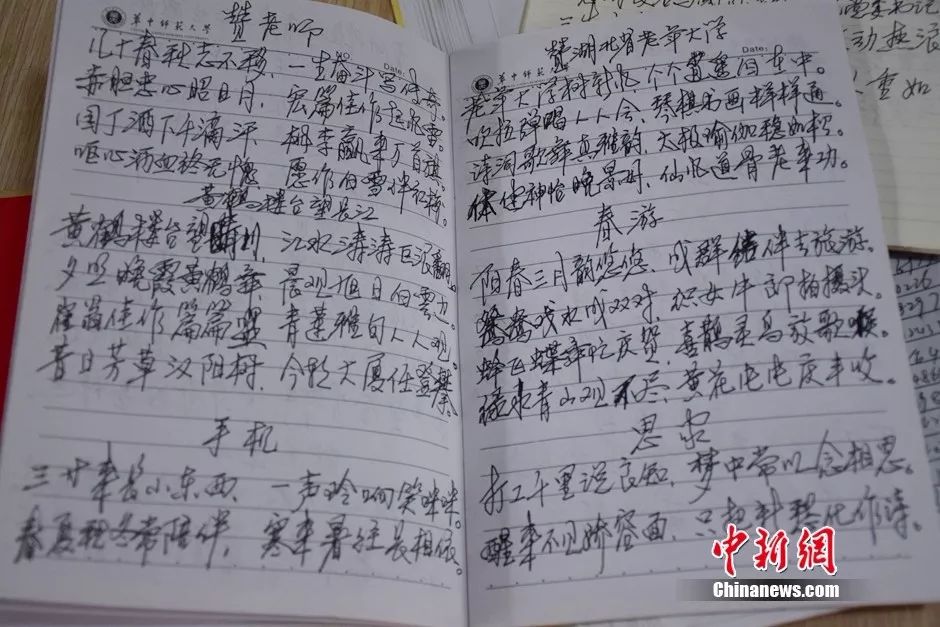 華中師範大學
赞老师
NO.
Date:
几十春秋志不移，一生奋斗写传奇。
赤胆忠心昭日月，宏篇佳作起风雷。
园丁洒下千滴汗，桃李赢来万首旗。
呕心沥血终无愧，愿作白雪伴红梅。
黄鹤楼台望长江
黄鹤楼台望晴川，江水涛涛巨浪翻。
夕照晚霞黄鹤舞，晨观旭日白云。
崔颢佳作篇篇，青莲雅句人人观。
昔日芳草汉阳树，今朝大厦任登攀。
手机
三寸来长小东西，一声铃响笑咪咪。
春夏秋冬常陪伴，寒来暑往长相依。
赞湖北省老年大学
華中師範
Date:
老年大学树新风，个个在中。
吹拉弹唱人人会，琴棋书画样样通。
诗词歌舞真雅韵，太极瑜伽稳如松。
体健神怡晚景明，仙风道骨老来功。
春游
阳春三月韵悠悠，成群结伴去旅游。
鸳鸯戏水成双对，织女牛郎拍摄头。
蜂飞蝶舞庆贺，喜鹊灵鸟放歌喉。
绿水青山观不尽，黄花屯屯庆丰收。
思
打工千里说良知，梦中常以念相思。
醒来不见娇容面，只把作诗。
中新網
Chinanews.com